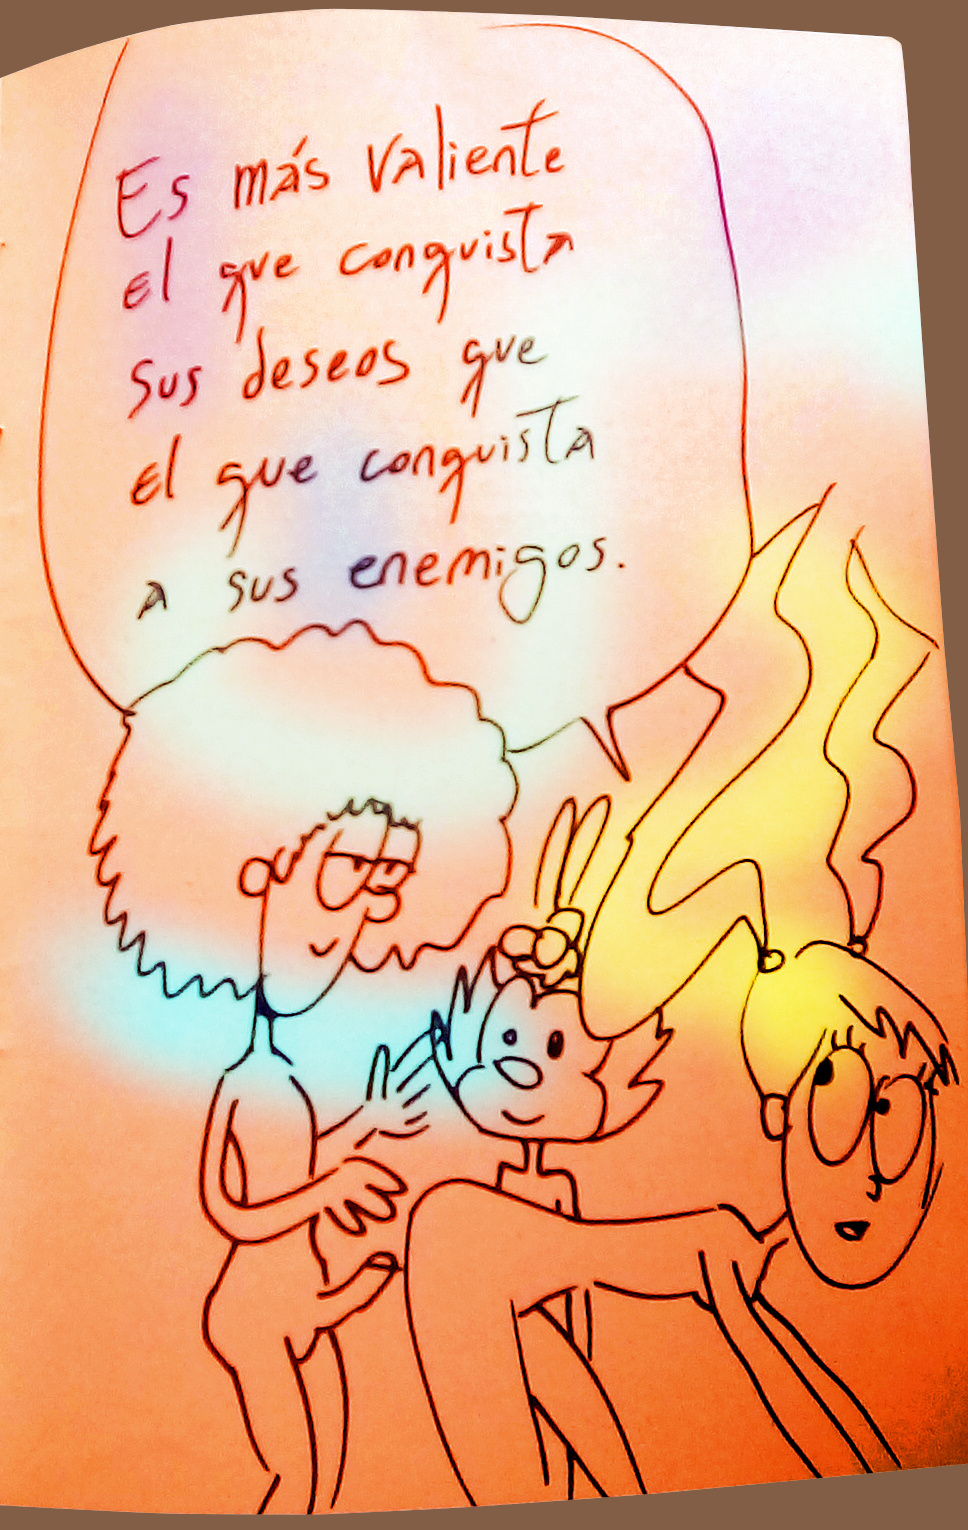 Es más valiente
el que conquista
sus deseos que
el que conquista
a sus enemigos.